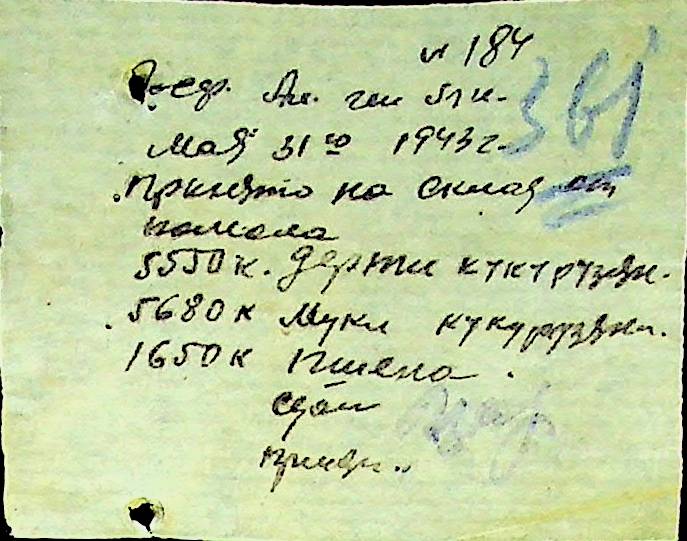 № 184
361
Мая 31го 1943 г.
Принято на склад от
помола
5550 к. Дерти кукурузян.
5680 к Муки кукурузян.
1650 к Пшена.
сдал
принял.